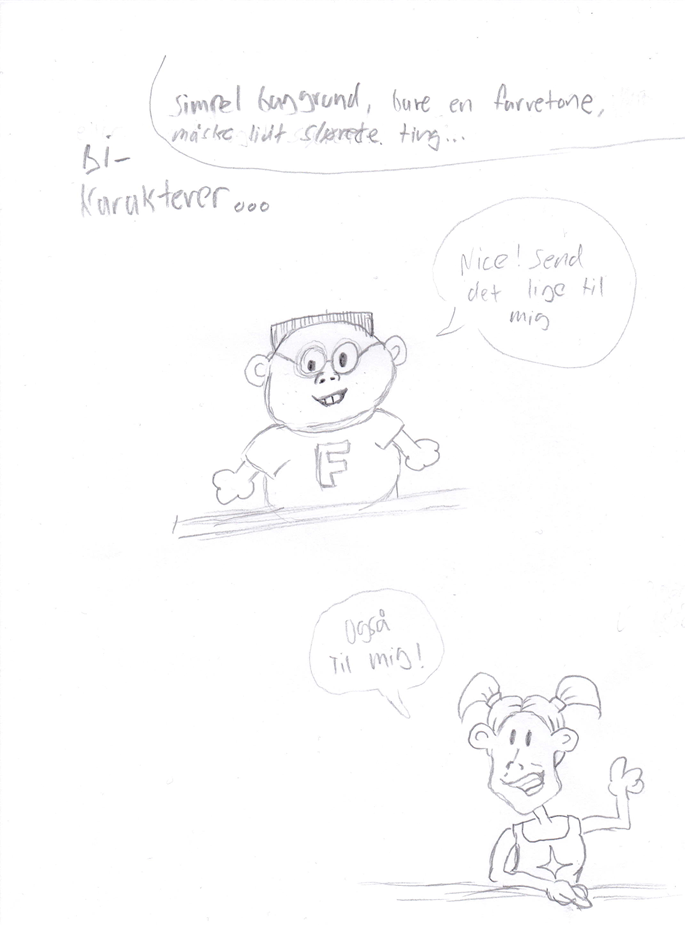 simpel baggrund, bare en farvetone,
måske lidt slørede ting...
Bi-
Karakterer...
Nice! Send
det lige til
mig
F
Også
Til mig!